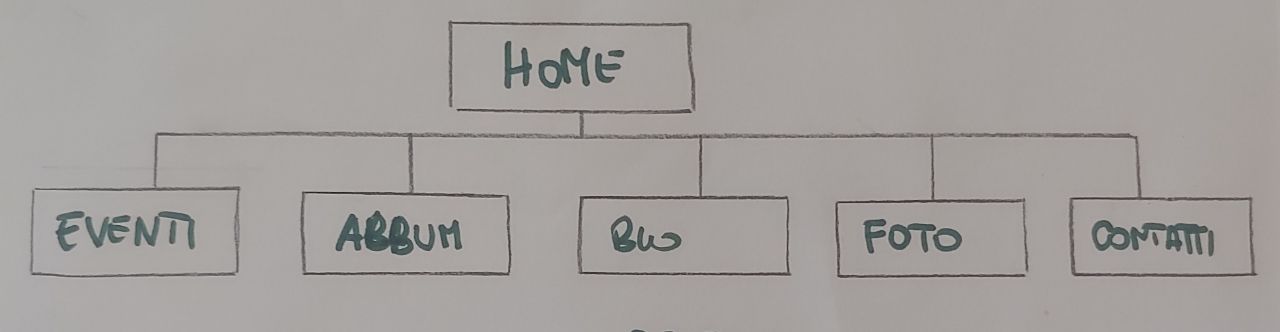 HOME
EVENTI
ABBUM
BIO
FOTO
CONTATTI